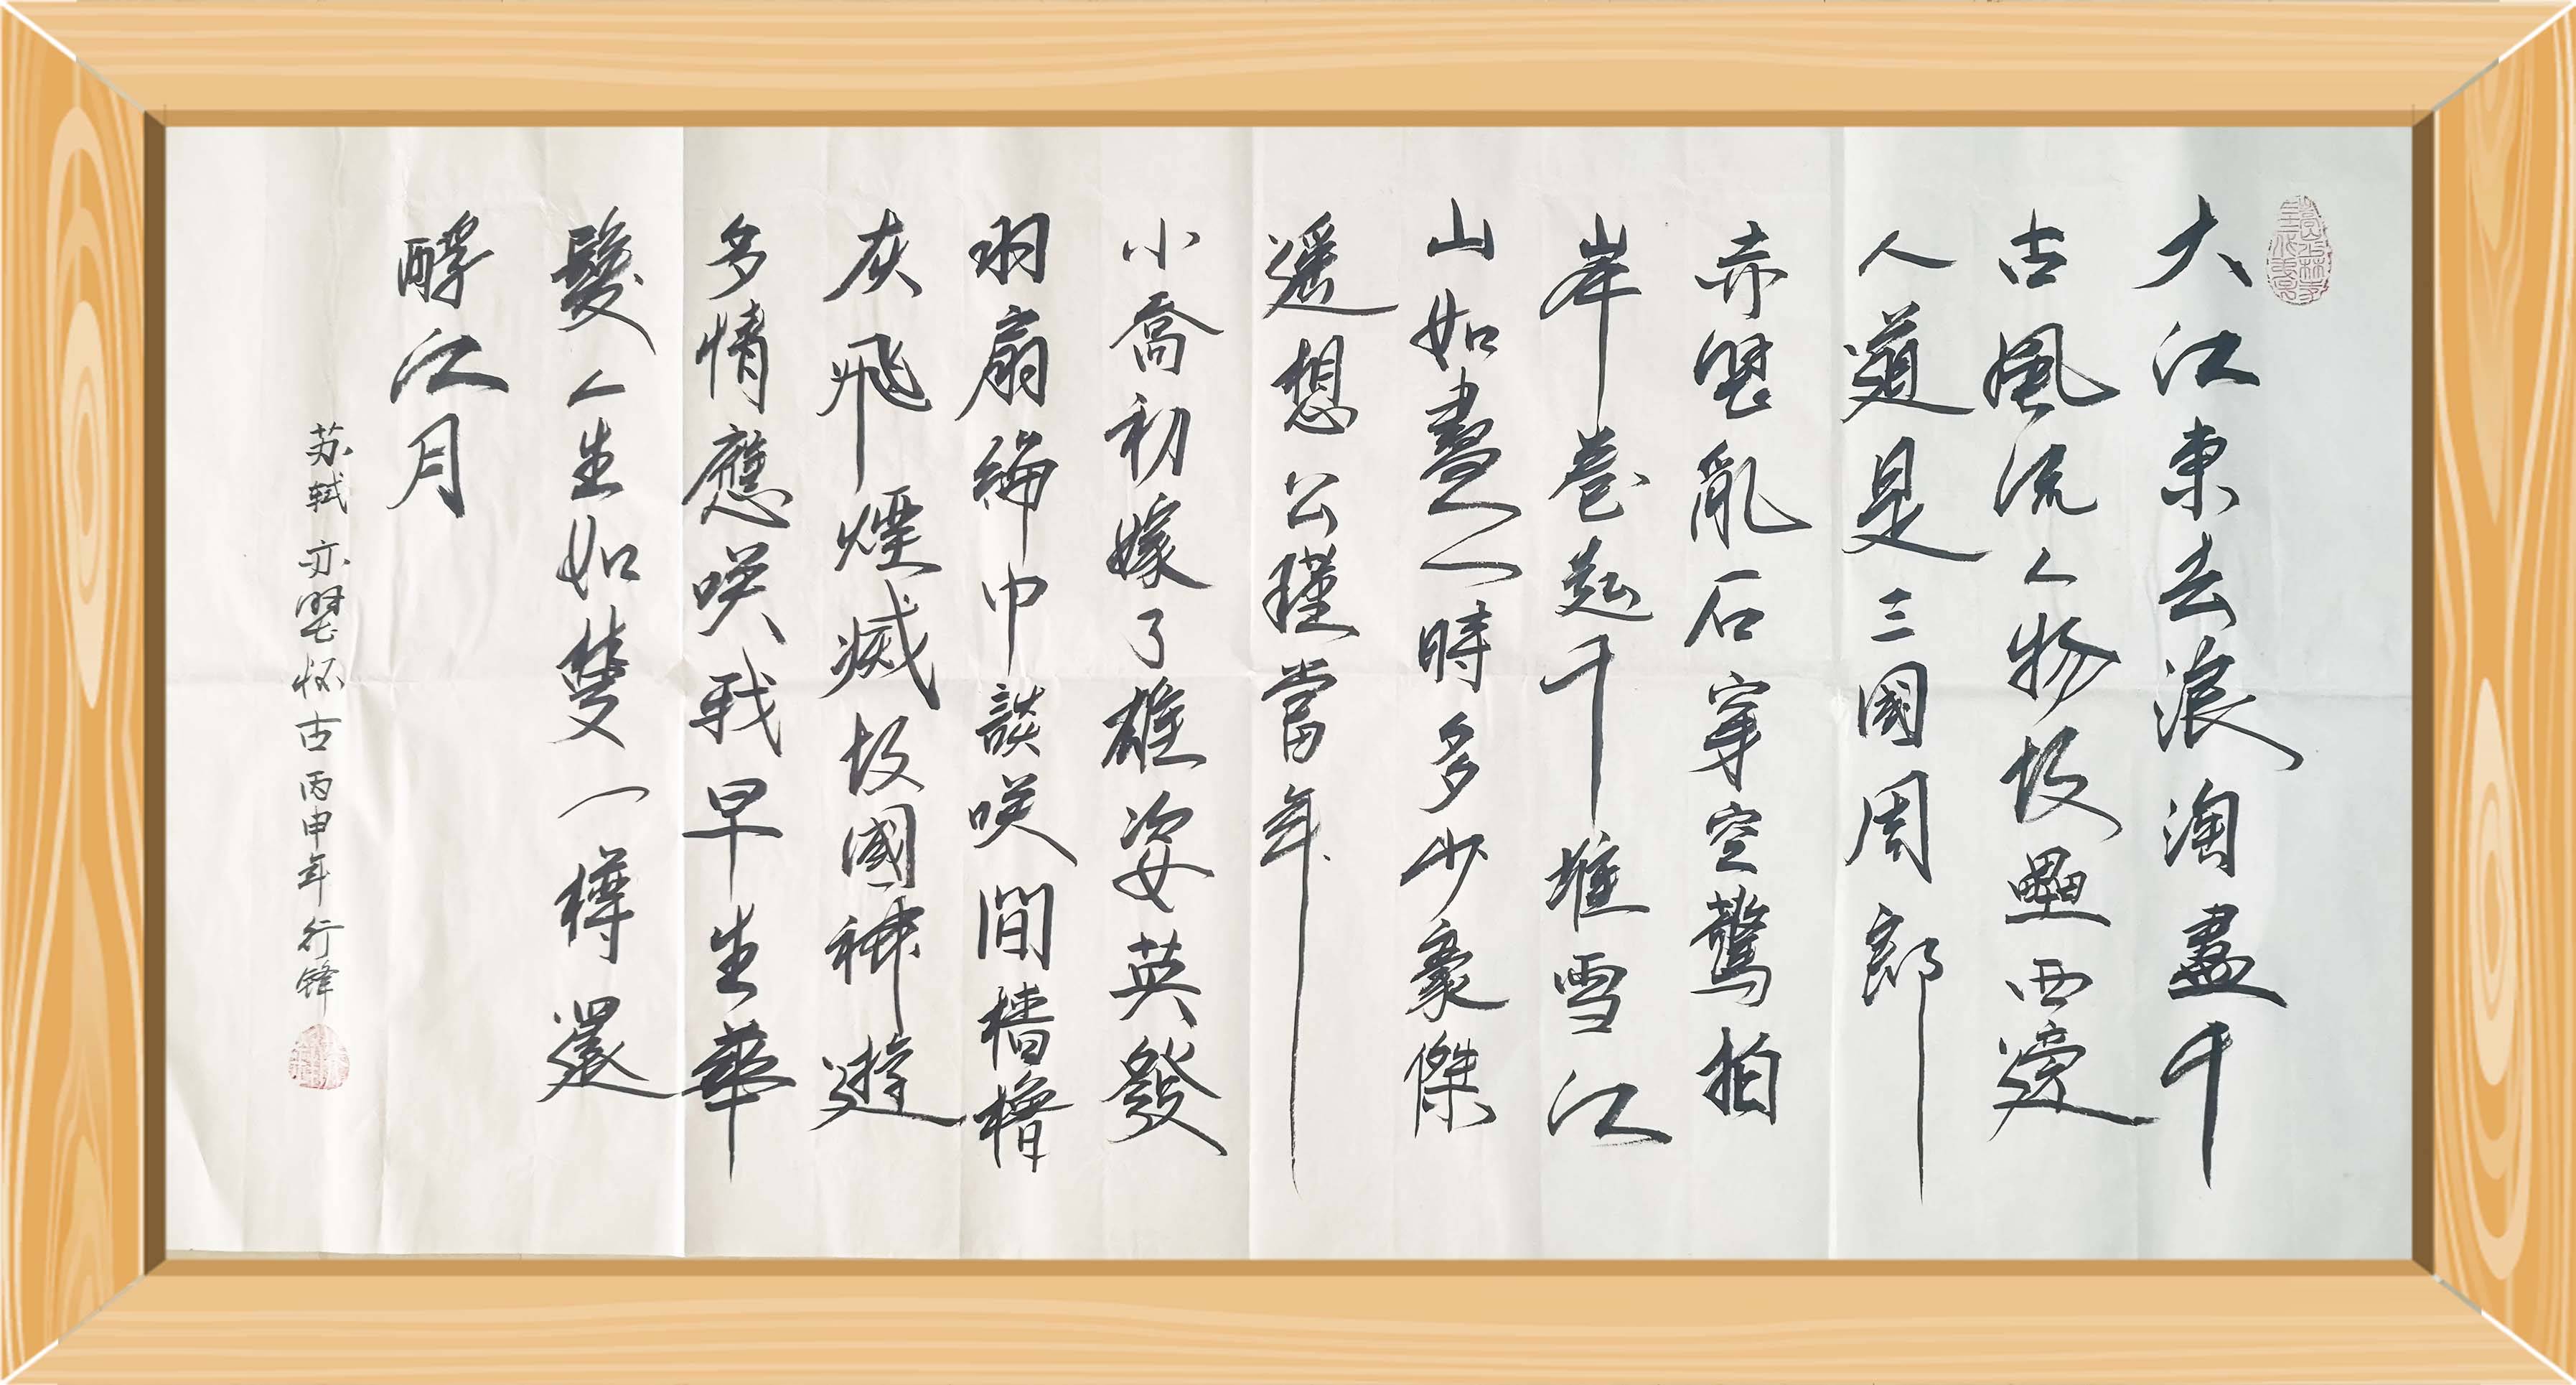 大江東去浪淘盡千
古風流人物故壘西邊
人道是三國周郎
赤壁亂石穿空驚拍
岸卷起千堆雪江
山如畫一時多少豪傑
遥想公瑾當年
小喬初嫁了雄姿英發
羽扇綸巾談咲間檣櫓
灰飛煙滅故國神遊
多情應咲我早生華
髮人生如夢一樽還
酹江月
苏轼 赤壁怀古 丙申年 行锋